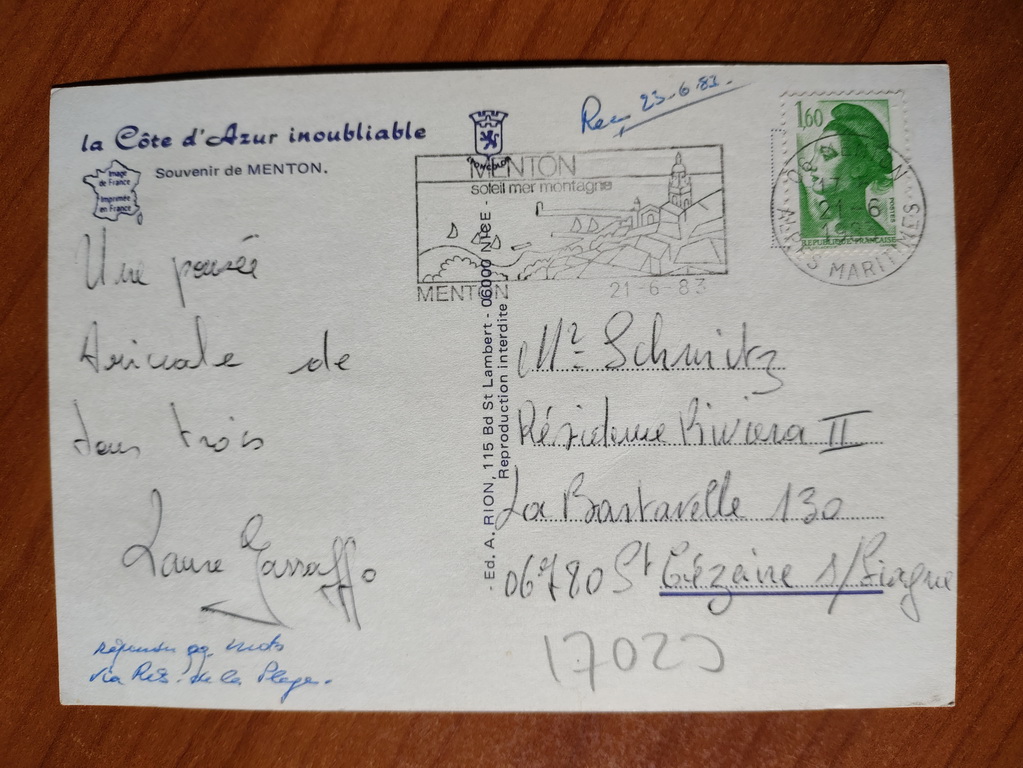 la Côte d'Azur inoubliable
Image
de France
Imprimée
en France
Souvenir de MENTON.
Rec 23-6-83.
MENTON
soleil mer montagne
MENTON
21-6-83
1,60
POSTES
REPUBLIQUE FRANÇAISE
21-6
MARITIMES
Une pensée
Amicale de
tous trois
Laure Gassaffo
réponse qq. mots
via Rés. de la Plage.
Ed. A. RION, 115 Bd St Lambert - 06000 NICE -
Reproduction interdite
Mr Schmitz
Résidence Riviera II
La Bartavelle 130
06780 St Cézaire s/Siagne
17023